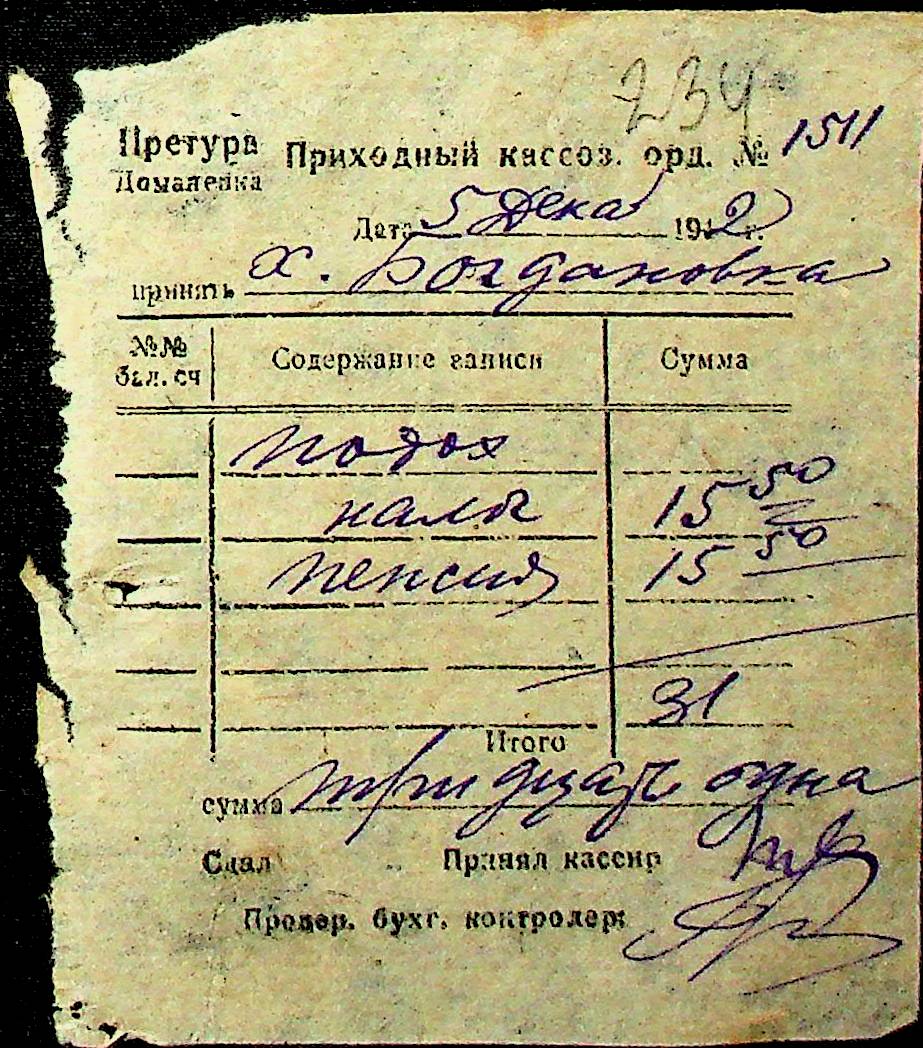 234
Претура Приходный кассов. орд. № 1511
Доманевка
Дата 5 Дека 1942 г.
принять х. Богдановка
№№ бал. сч Содержание записи Сумма
подох
налог 15 50
пенсия 15 50
31
Итого
сумма тридцать одна
Сдал Принял кассир
Провер. бухг. контролер: